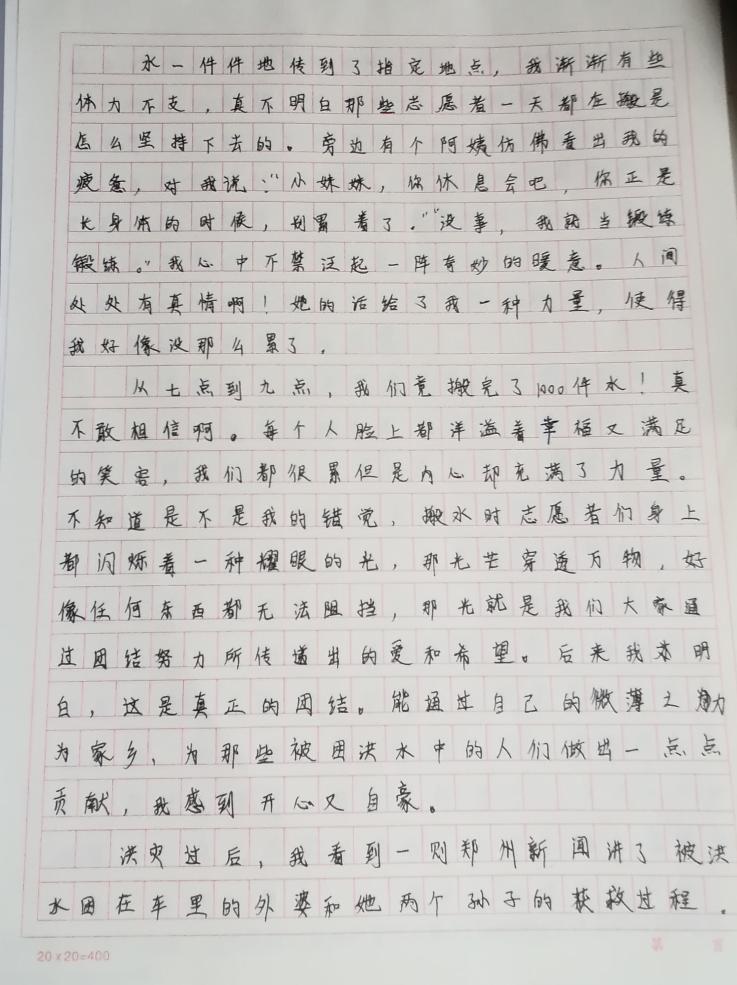 水一件件地传到了指定地点，我渐渐有些
体力不支，真不明白那些志愿者一天都在搬是
怎么坚持下去的。旁边有个阿姨仿佛看出我的
疲惫，对我说："小妹妹，你休息会吧，你正是
长身体的时候，别累着了。""没事，我就当锻练
锻练。"我心中不禁泛起一阵奇妙的暖意。人间
处处有真情啊！她的话给了我一种力量，使得
我好像没那么累了。
从七点到九点，我们竟搬完了1000件水！真
不敢相信啊。每个人脸上都洋溢着幸福又满足
的笑容，我们都很累但是内心却充满了力量。
不知道是不是我的错觉，搬水时志愿者们身上
都闪烁着一种耀眼的光，那光芒穿透万物，好
像任何东西都无法阻挡，那光就是我们大家通
过团结努力所传递出的爱和希望。后来我才明
白，这是真正的团结。能通过自己的微薄之力
为家乡、为那些被困洪水中的人们做出一点点
贡献，我感到开心又自豪。
洪灾过后，我看到一则郑州新闻讲了被洪
水困在车里的外婆和她两个孙子的获救过程。
20×20=400
第 页